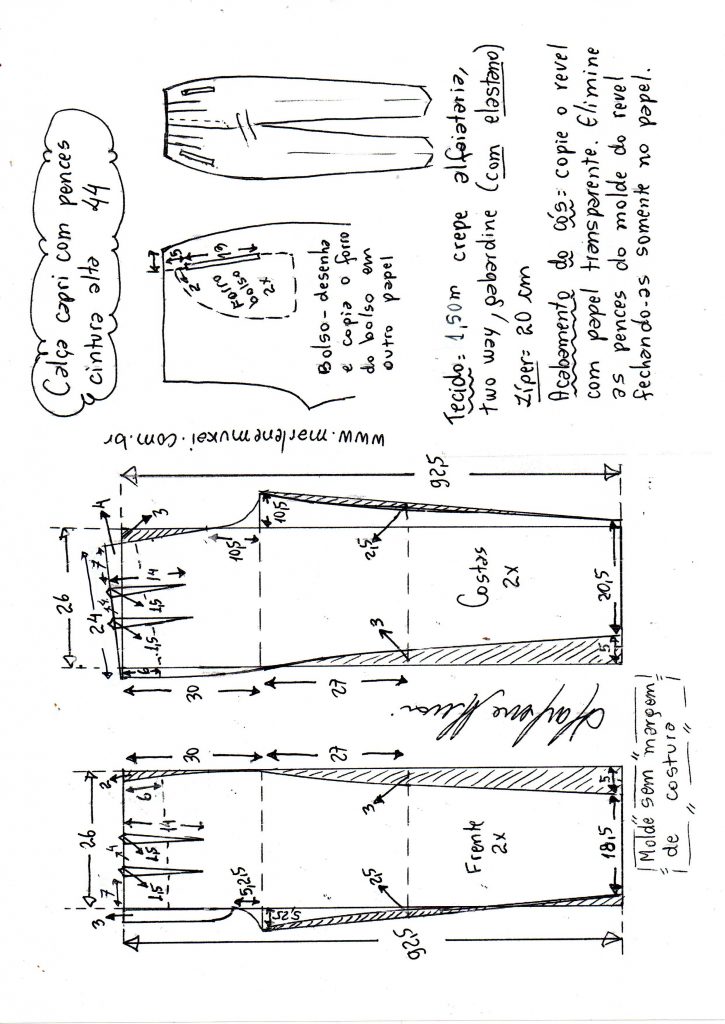 Calça capri com pences
cintura alta 44
www.marlenemukai.com.br
Bolso-desenha
e copia o forro
do bolso em
outro papel
Forro
bolso
2x
2
1,5
19
Tecido= 1,50m crepe alfaiataria,
two way, gabardine (com elastano)
Zíper= 20 cm
Acabamento do cós= copie o revel
com papel transparente. Elimine
as pences do molde do revel
fechando-as somente no papel.
26
24
7
4
3
4
14
1,5
1,5
6
10,5
10,5
30
27
2,5
3
92,5
Costas
2x
20,5
5
26
3
7
4
2
6
14
1,5
1,5
5,25
5,25
30
27
2,5
3
92,5
Frente
2x
18,5
5
Molde sem margem
de costura